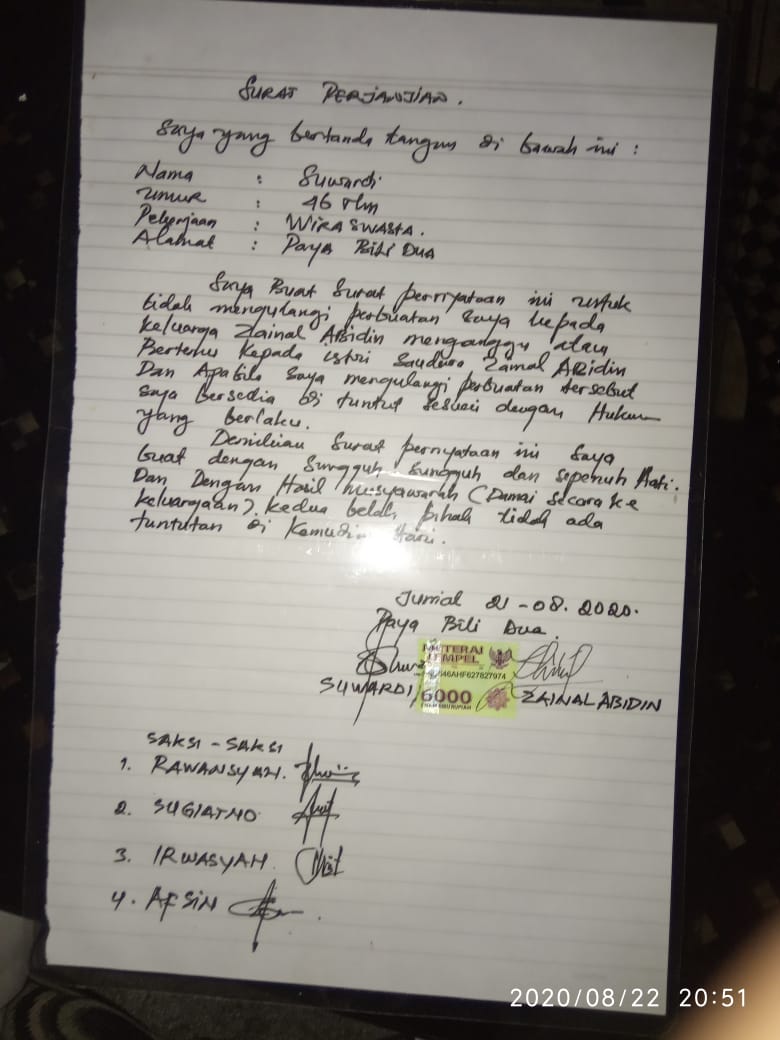 SURAT PERJANJIAN.
Saya yang bertanda tangan di bawah ini :
Nama : Suwardi
Umur : 46 Thn
Pekerjaan : WIRASWASTA.
Alamat : Paya Bili Dua
Saya Buat Surat pernyataan ini untuk
tidak mengulangi perbuatan saya kepada
keluarga Zainal Abidin menganggu atau
Bertemu kepada istri saudara Zainal Abidin
Dan Apabila saya mengulangi perbuatan tersebut
saya Bersedia di tuntut sesuai dengan Hukum
yang berlaku.
Demikian surat pernyataan ini saya
buat dengan sungguh sungguh dan sepenuh Hati.
Dan Dengan Hasil musyawarah (Damai secara ke
keluargaan). kedua belah pihak tidak ada
tuntutan di kemudian Hari.
Jumat 21-08.2020.
Paya Bili Dua
METERAI
TEMPEL
6000
SUWARDI ZAINAL ABIDIN
SAKSI - SAKSI
1. RAWANSYAH.
2. SUGIATNO
3. IRWASYAH
4. AFSIN
2020/08/22 20:51